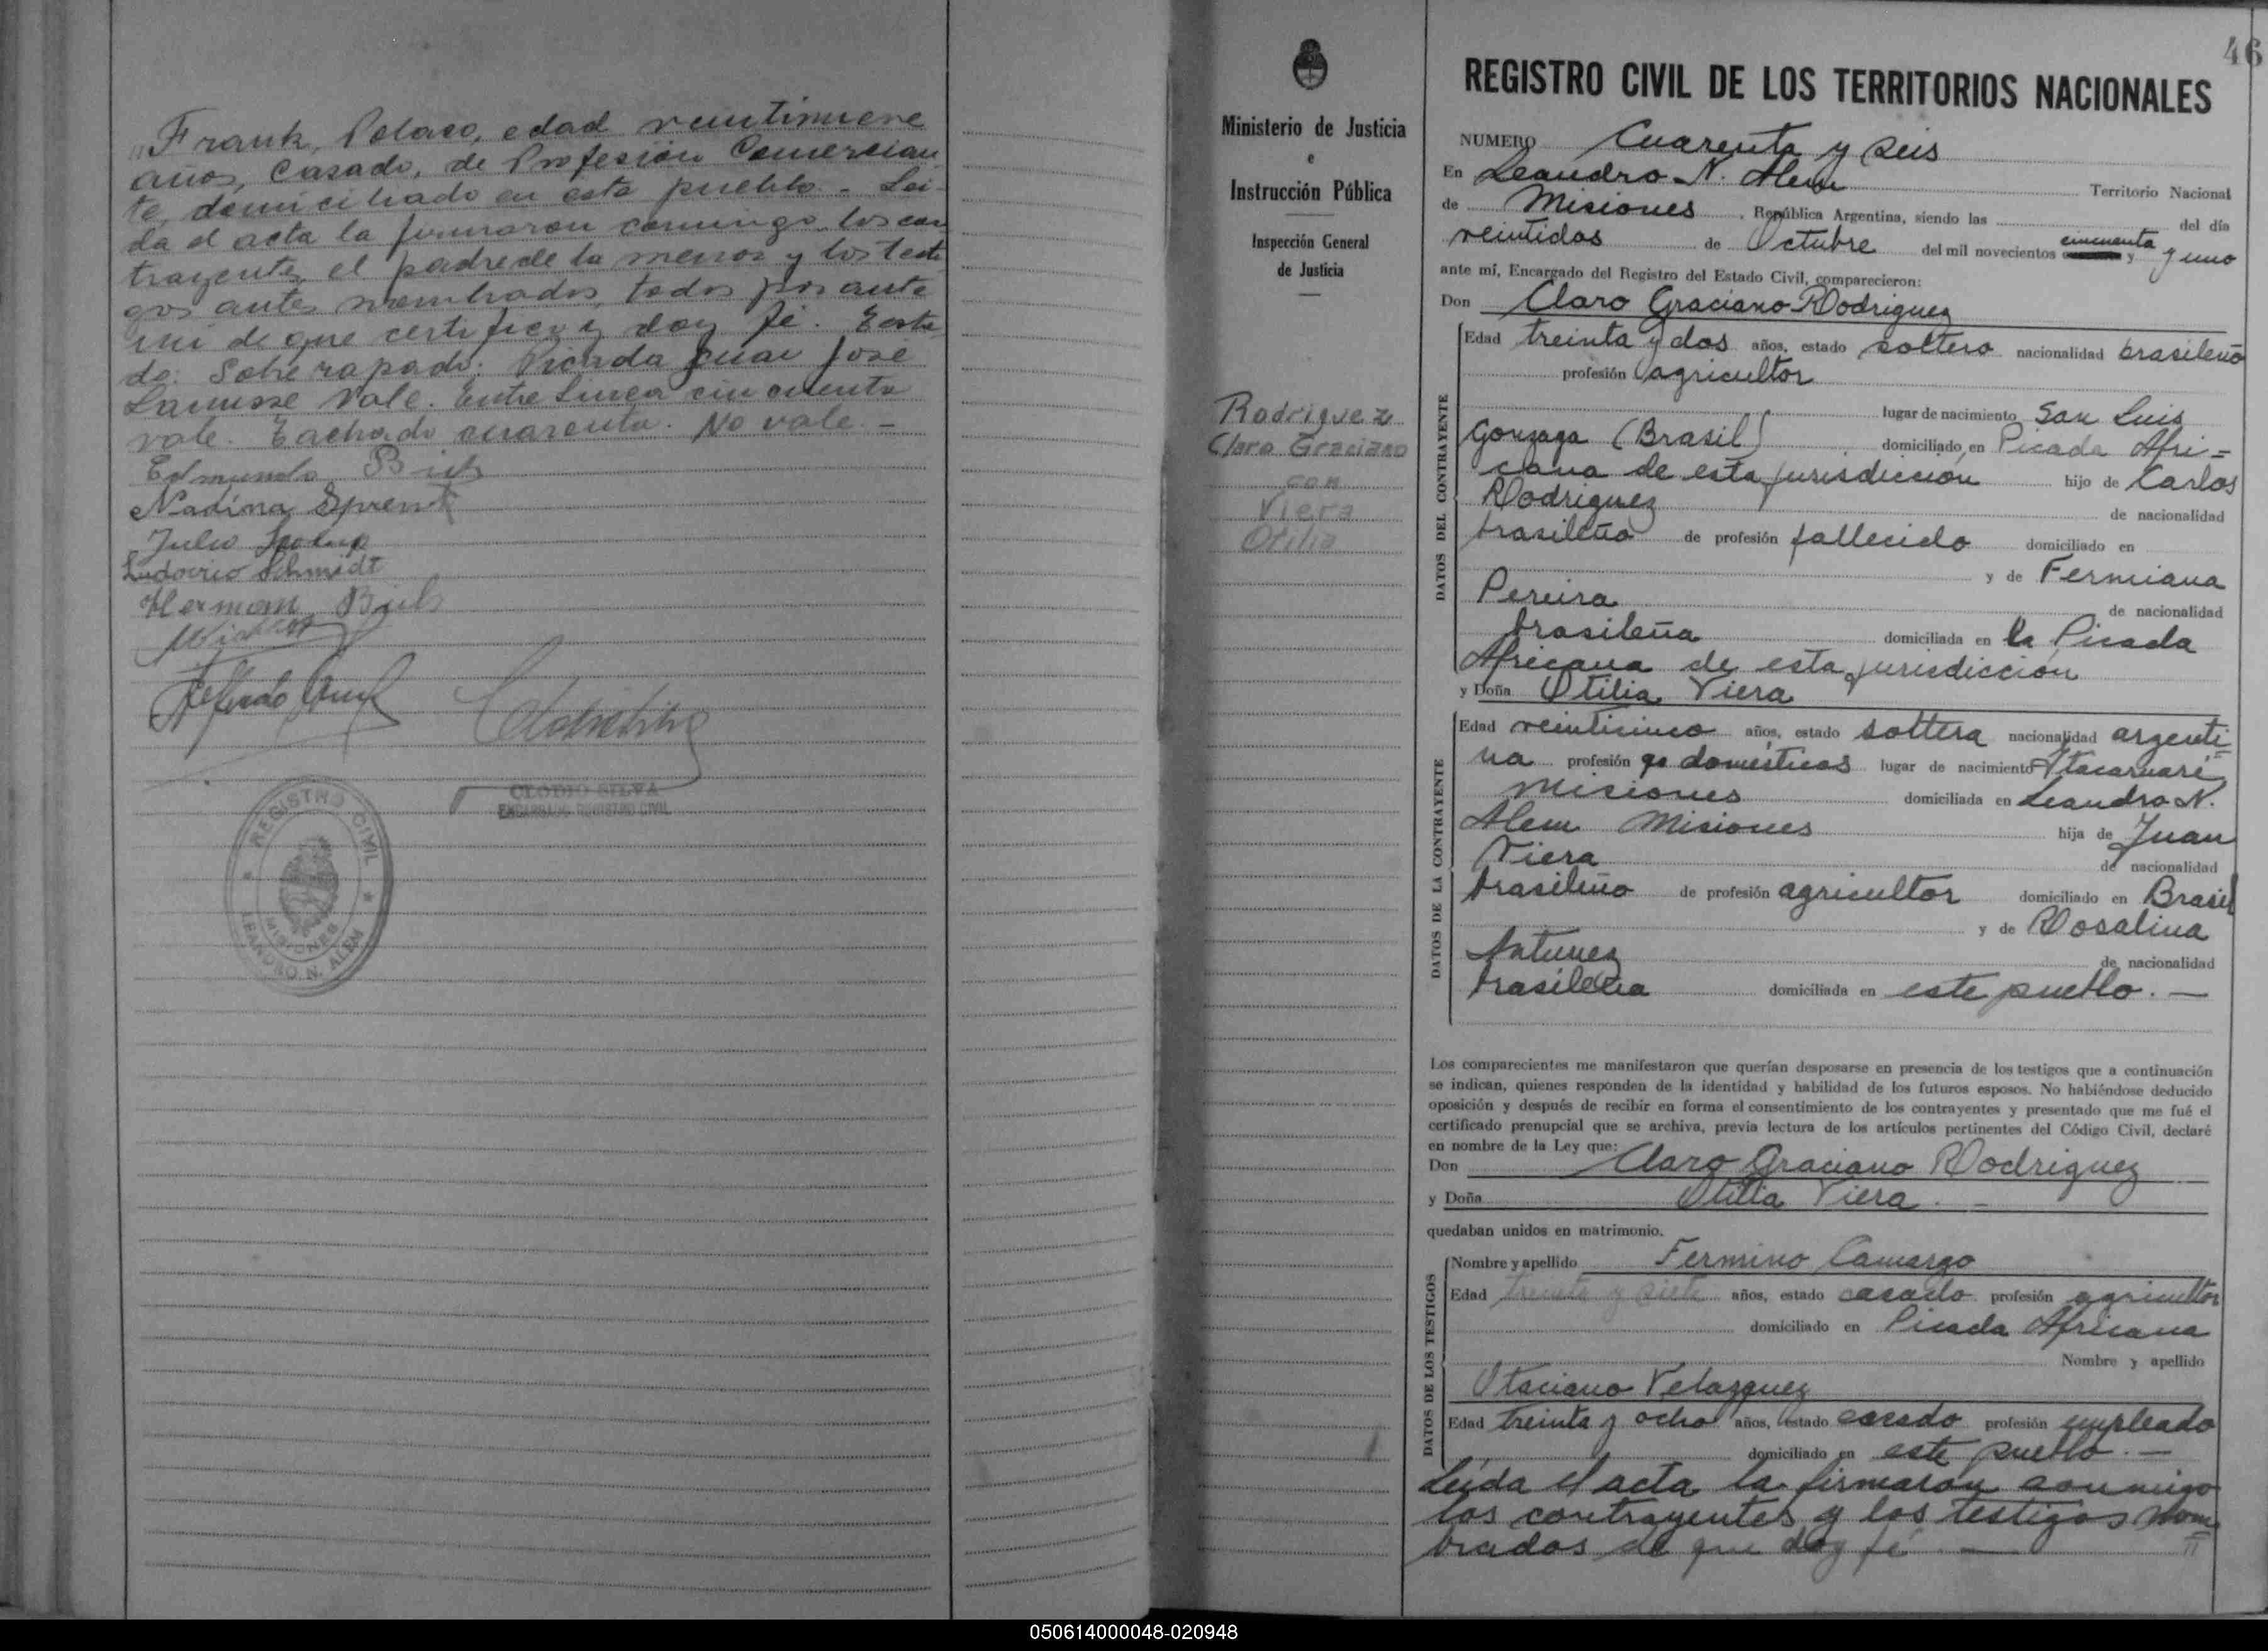 Frank, Polaco, edad veintinueve
años, Casado, de Profesión Comercian
te, domiciliado en este pueblo - Lei
da el acta la firmaron conmigo los con
trayentes, el padre de la menor y los testi
gos antes nombrados, todos por ante
mi de que certifico y doy fé. Enta
do: Sobre rapado: Picada José
Lanusse Vale. Entre Linea cincuenta
vale. Tachado cuarenta. No vale. -
Edmundo
Nadina
Julio
Ludovico Schmidt
Herman
Alfredo
CLODIO SILVA
ENCARGADO REGISTRO CIVIL
REGISTRO CIVIL
MISIONES
LEANDRO N. ALEM
Ministerio de Justicia
e
Instrucción Pública
Inspección General
de Justicia
Rodriguez
Claro Graciano
con
Viera
Otilia
46
REGISTRO CIVIL DE LOS TERRITORIOS NACIONALES
NUMERO Cuarenta y seis
En Leandro N. Alem Territorio Nacional
de Misiones, República Argentina, siendo las del día
veintidos de Octubre del mil novecientos cincuenta y y uno
ante mí, Encargado del Registro del Estado Civil, comparecieron:
Don Claro Graciano Rodriguez
DATOS DEL CONTRAYENTE
Edad treinta y dos años, estado soltero nacionalidad brasileño
profesión agricultor
lugar de nacimiento San Luis
Gonzaga (Brasil) domiciliado en Picada Afri=
cana de esta jurisdicción hijo de Carlos
Rodriguez de nacionalidad
brasileño de profesión fallecido domiciliado en
y de Fermiana
Pereira de nacionalidad
brasileña domiciliada en la Picada
Africana de esta jurisdicción
y Doña Otilia Viera
DATOS DE LA CONTRAYENTE
Edad veinticinco años, estado soltera nacionalidad argenti=
na profesión qs domésticos lugar de nacimiento Itacaruaré
Misiones domiciliada en Leandro N.
Alem Misiones hija de Juan
Viera de nacionalidad
brasileño de profesión agricultor domiciliado en Brasil
y de Rosalina
Antunez de nacionalidad
brasileña domiciliada en este pueblo. —
Los comparecientes me manifestaron que querían desposarse en presencia de los testigos que a continuación
se indican, quienes responden de la identidad y habilidad de los futuros esposos. No habiéndose deducido
oposición y después de recibir en forma el consentimiento de los contrayentes y presentado que me fué el
certificado prenupcial que se archiva, previa lectura de los artículos pertinentes del Código Civil, declaré
en nombre de la Ley que:
Don Claro Graciano Rodriguez
y Doña Otilia Viera. -
quedaban unidos en matrimonio.
DATOS DE LOS TESTIGOS
Nombre y apellido Fermino Camargo
Edad treinta y siete años, estado casado profesión agricultor
domiciliado en Picada Africana
Nombre y apellido
Otaciano Velazquez
Edad treinta y ocho años, estado casado profesión empleado
domiciliado en este pueblo. —
Leida el acta la firmaron conmigo
los contrayentes y los testigos nom=
brados de que doy fé. —
050614000048-020948